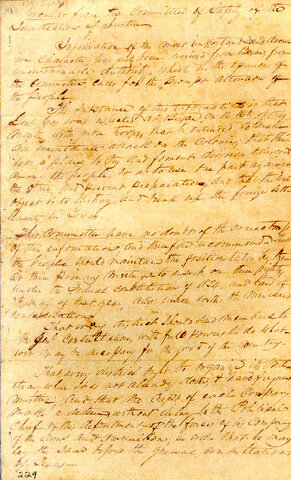 Circular from the Committee of Safety of the
Jurisdiction of Austin
Information of the most important and decisive
Character has just been received here from
unquestionable authority, which in the opinion of
the Committee calls for the prompt attention of
the people.
The substance of this information is that
Genl Cos was expected at Bejar on the 16th of this
Month with more troops, that he intended to make
an immediate attack on the Colonies, that the
plan is to try and foment division and discord
among the people so as to use one part against
the other, and prevent preparation, and that the real
object is to destroy and break up the foreign settle
ments in Texas.
This Committee have no doubt of the correctness
of this information and therefore recommend that
the people should maintain the position taken by them
at their primary meetings to insist on their rights
under the Federal Constitution of 1824, and Law of
7th may of that year, and union with the Mexican
Confederation.
That every district should send members to
the Genl Consultation, with full powers to do what
ever may be necessary for the good of the country.
That every district ought to organize its militia
where it is not already done, and have frequent
musters, and that the Capts of each Company
make a return without delay to the Political
Chief of this department of the force of his Company
of the Arms and Ammunition, in order that he may
lay the same before the general consultation
of Texas
229